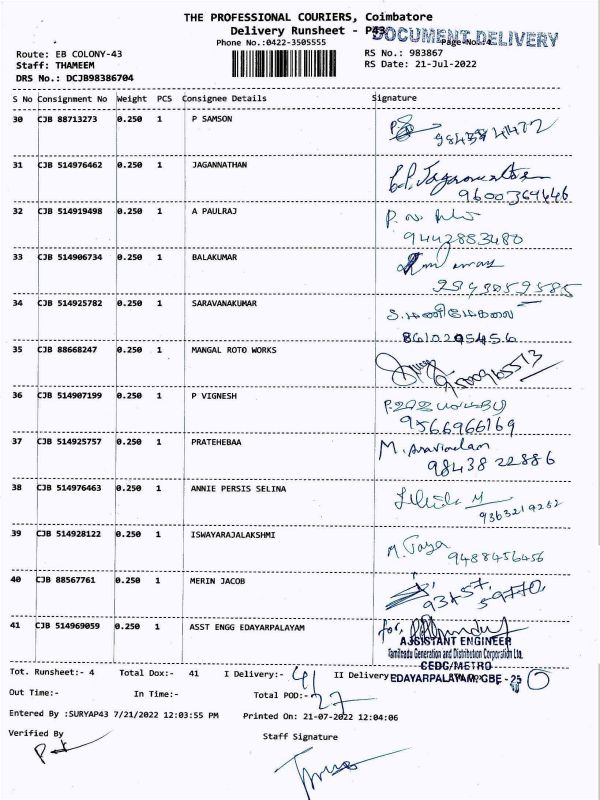 THE PROFESSIONAL COURIERS, Coimbatore
Delivery Runsheet - P43
DOCUMENT DELIVERY
Phone No.:0422-3505555
Page No.:4
Route: EB COLONY-43
RS No.: 983867
Staff: THAMEEM
RS Date: 21-Jul-2022
DRS No.: DCJB98386704
S No Consignment No Weight PCS Consignee Details Signature
30 CJB 88713273 0.250 1 P SAMSON
31 CJB 514976462 0.250 1 JAGANNATHAN
9600364646
32 CJB 514919498 0.250 1 A PAULRAJ
9442883480
33 CJB 514906734 0.250 1 BALAKUMAR
34 CJB 514925782 0.250 1 SARAVANAKUMAR
8610295456
35 CJB 88668247 0.250 1 MANGAL ROTO WORKS
36 CJB 514907199 0.250 1 P VIGNESH
9566966169
37 CJB 514925757 0.250 1 PRATEHEBAA
98438 22886
38 CJB 514976463 0.250 1 ANNIE PERSIS SELINA
39 CJB 514928122 0.250 1 ISWAYARAJALAKSHMI
M. Jaya
9488456456
40 CJB 88567761 0.250 1 MERIN JACOB
41 CJB 514969059 0.250 1 ASST ENGG EDAYARPALAYAM
for,
ASSISTANT ENGINEER
Tamilnadu Generation and Distribution Corporation Ltd.
CEDC/METRO
EDAYARPALAYAM, CBE - 25
Tot. Runsheet:- 4 Total Dox:- 41 I Delivery:- 41 II Delivery
Out Time:- In Time:- Total POD:- 27
Entered By :SURYAP43 7/21/2022 12:03:55 PM Printed On: 21-07-2022 12:04:06
Verified By
Staff Signature